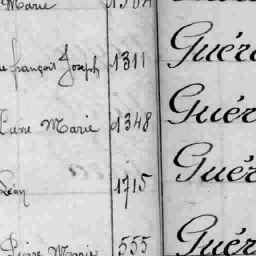 Marie
françois Joseph 1311 Guér
Marie 1348 Guér
Guér
Jean 1715
Pierre Marie 555 Guér